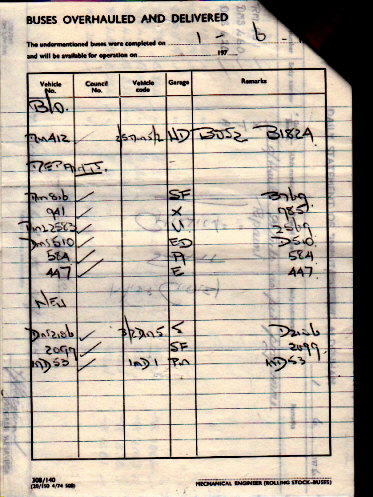 BUSES OVERHAULED AND DELIVERED
The undermentioned buses were completed on 1 - 6 -
and will be available for operation on 197
Vehicle No. Council No. Vehicle code Garage Remarks
B/O.
412 HD B052 B182A
REPAINT
816 ✓ SF B769
941 ✓ X 985
2583 ✓ U 2569
DMS510 ✓ ED D510
584 ✓ A 584
447 ✓ E 447
NEW
DMS2186 ✓ S D2186
2099 ✓ SF 2099
MD53 ✓ MD1 PM MD53
308/140
(20/150 4/74 50B)
MECHANICAL ENGINEER (ROLLING STOCK—BUSES)